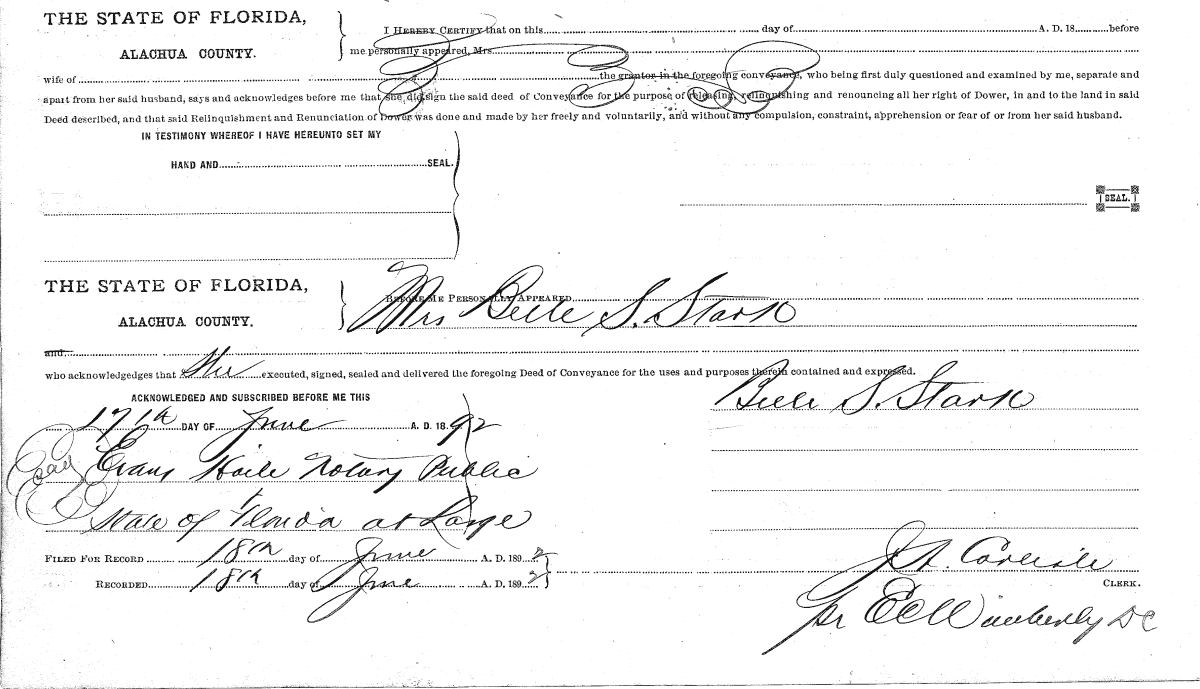 THE STATE OF FLORIDA,
ALACHUA COUNTY.
I HEREBY CERTIFY that on this day of A. D. 18 before
me personally appeared, Mrs
wife of the grantor in the foregoing conveyance, who being first duly questioned and examined by me, separate and
apart from her said husband, says and acknowledges before me that she did sign the said deed of Conveyance for the purpose of releasing, relinquishing and renouncing all her right of Dower, in and to the land in said
Deed described, and that said Relinquishment and Renunciation of Dower was done and made by her freely and voluntarily, and without any compulsion, constraint, apprehension or fear of or from her said husband.
IN TESTIMONY WHEREOF I HAVE HEREUNTO SET MY
HAND AND SEAL.
SEAL.
THE STATE OF FLORIDA,
ALACHUA COUNTY.
BEFORE ME PERSONALLY APPEARED
Mrs Belle S. Stark
and
who acknowledgedges that she executed, signed, sealed and delivered the foregoing Deed of Conveyance for the uses and purposes therein contained and expressed.
ACKNOWLEDGED AND SUBSCRIBED BEFORE ME THIS
Belle S. Stark
17th DAY OF June A. D. 18 92
Seal Evans Haile Notary Public
State of Florida at Large
FILED FOR RECORD 18th day of June A. D. 189 2
J. A. Carlisle
RECORDED 18th day of June A. D. 189 2
CLERK.
pr E C Wimberly DC